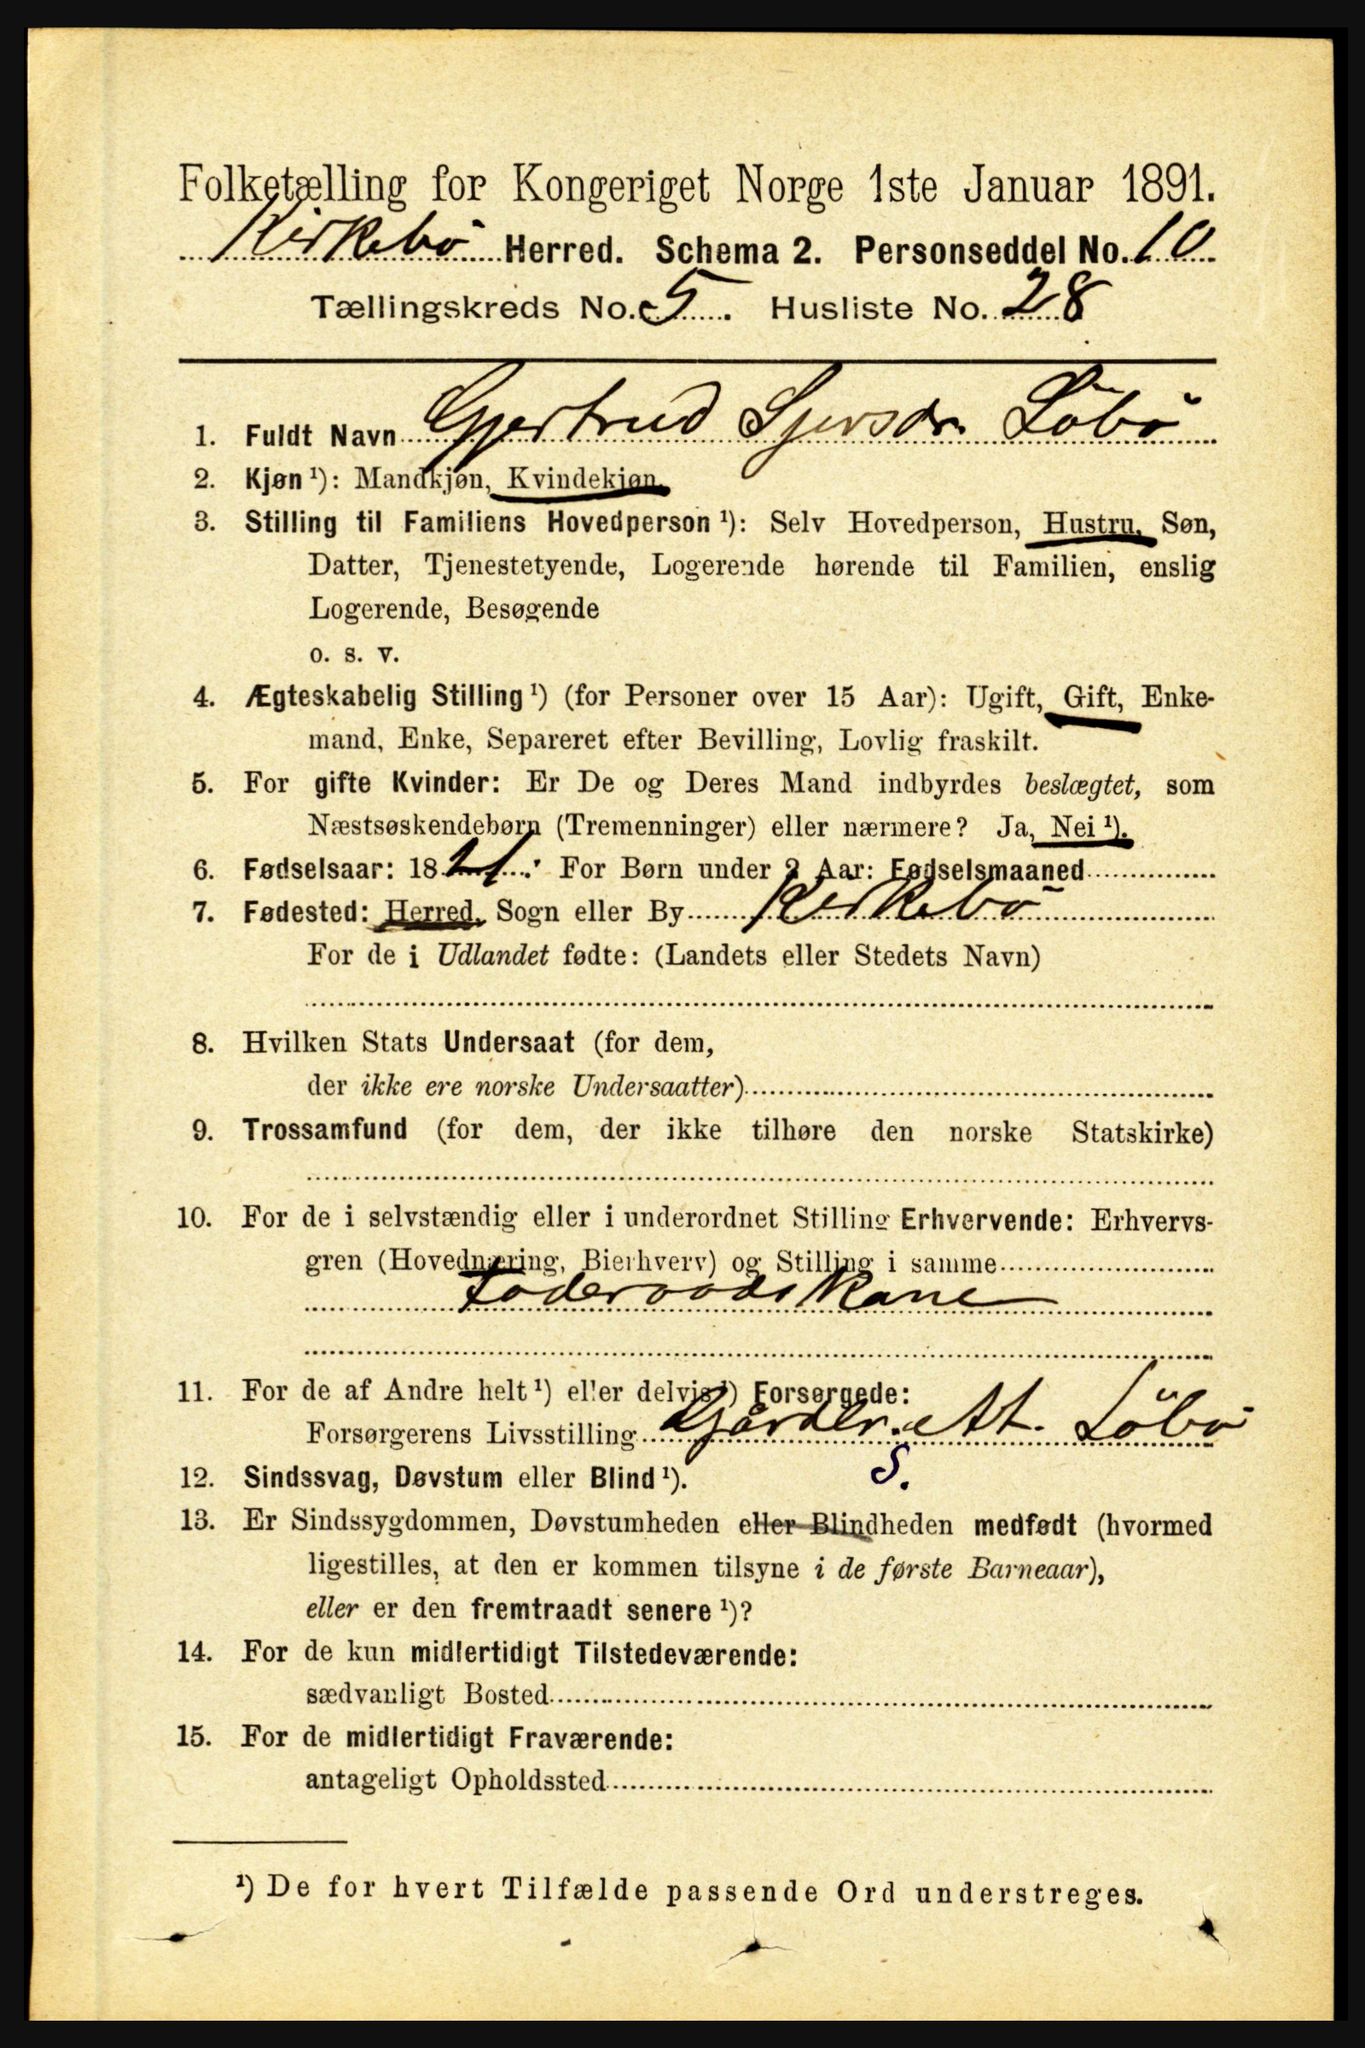 Folketælling for Kongeriget Norge 1ste Januar 1891.
Kirkebö Herred. Schema 2. Personseddel No. 10
Tællingskreds No. 5. Husliste No. 28
1. Fuldt Navn Gjertrud Sjursdr. Löbö
2. Kjøn ¹): Mandkjøn, Kvindekjøn.
3. Stilling til Familiens Hovedperson ¹): Selv Hovedperson, Hustru, Søn,
Datter, Tjenestetyende, Logerende hørende til Familien, enslig
Logerende, Besøgende
o. s. v.
4. Ægteskabelig Stilling ¹) (for Personer over 15 Aar): Ugift, Gift, Enke-
mand, Enke, Separeret efter Bevilling, Lovlig fraskilt.
5. For gifte Kvinder: Er De og Deres Mand indbyrdes beslægtet, som
Næstsøskendebørn (Tremenninger) eller nærmere? Ja, Nei ¹).
6. Fødselsaar: 1821. For Børn under 2 Aar: Fødselsmaaned
7. Fødested: Herred, Sogn eller By Kirkebö
For de i Udlandet fødte: (Landets eller Stedets Navn)
8. Hvilken Stats Undersaat (for dem,
der ikke ere norske Undersaatter)
9. Trossamfund (for dem, der ikke tilhøre den norske Statskirke)
10. For de i selvstændig eller i underordnet Stilling Erhvervende: Erhvervs-
gren (Hovednæring, Bierhverv) og Stilling i samme
Föderaadskone
11. For de af Andre helt ¹) eller delvis ¹) Forsørgede:
Forsørgerens Livsstilling Gårdbr. At. Löbö
S.
12. Sindssvag, Døvstum eller Blind ¹).
13. Er Sindssygdommen, Døvstumheden eller Blindheden medfødt (hvormed
ligestilles, at den er kommen tilsyne i de første Barneaar),
eller er den fremtraadt senere ¹)?
14. For de kun midlertidigt Tilstedeværende:
sædvanligt Bosted
15. For de midlertidigt Fraværende:
antageligt Opholdssted
¹) De for hvert Tilfælde passende Ord understreges.